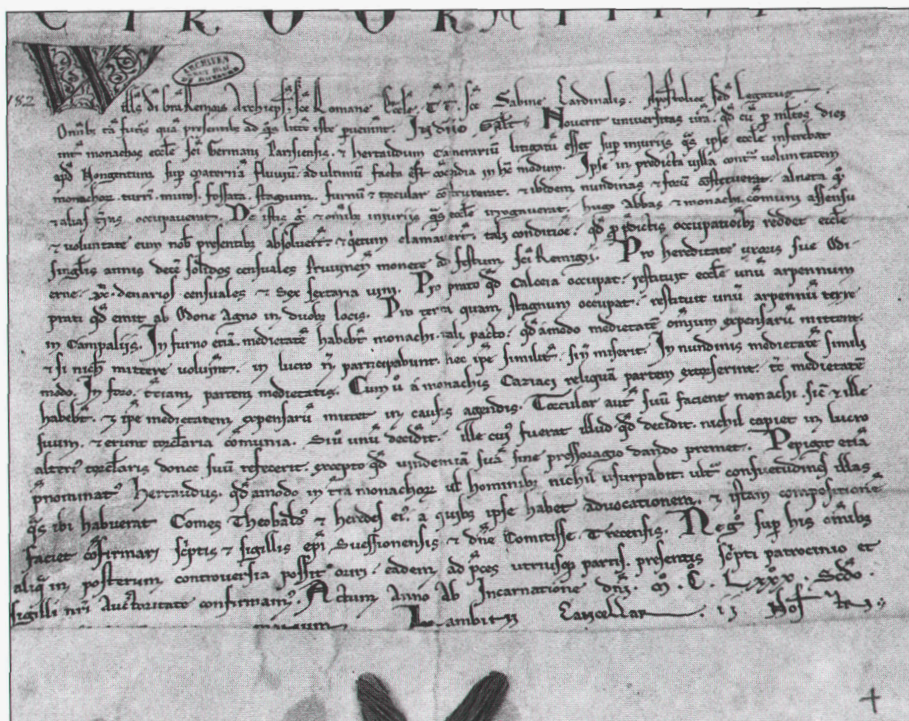 C I R O G R
182
Will's di gra Remens Archiep's. sce Romane Eccle. Tt. sce Sabine Cardinalis. Apostolice sedis Legatus.
Omnib; tā futuris quā presentib; ad q̄s littere iste pervenerint. In dño Salt. Noverit universitas vra. qd cū p multos dies
inter monachos ecclie sci Germani Parisiensis. & hertaudum Camerariū litigatū esset sup iniuriis q̄s ipse ecclie inferebat
apd Nongentum sup maternā fluviū. ad ultimū facta est cōcordia in hc modum. Ipse in predicta villa contra voluntatem
monachoꝝ turrim. muros. fossata. stagnum. furnū & torcular cōstruxerat. & ibidem nundinas & forū cōstituerat. alneta q;
& alias tras occupaverat. De istis g & omib; iniuriis q̄s ecclie irrogaverat. hugo Abbas & monachi cōmuni assensu
& voluntate eum nob presentib; absolverunt & qetum clamaverunt. tali conditione. qd p pdictis occupationib; reddet ecclie
singulis annis decē solidos censuales Pruvignensis monete ad festum sci Remigii. Pro hereditate uxoris sue Odi
erne. xv. denarios censuales & sex sextaria vini. Pro prato qd Calceia occupat. restituit ecclie unū arpennum
prati qd emit ab Odone Agno in duob; locis. Pro terra quam stagnum occupat. restituit unū arpennū terre
in Campaliis. In furno etiā medietatē habebt monachi. tali pacto. qd amodo medietatē omium expensarū mittent.
& si nich mittere voluerint. in lucro n participabunt. hoc ipse similit. si n miserit. In nundinis medietatē simili
modo. In foro. tciam partem medietatis. Cum v a monachis Caziaci reliquā partem extorserint. tc medietatē
habebt. & ipse medietatem expensarū mittet in causis agendis. Torcular aut suū facient monachi. sic & ille
suum. & erunt torcularia cōmunia. Si v unū deciderit. ille cuj fuerat illud qd decidit. nichil capiet in lucro
alterius torcularis donec suū refecerit. excepto qd vindemiā suā sine pressoragio dando premet. Pepigit etiā
pnominat' Hertaudus. qd amodo in tra monachoꝝ ul hominib; nichil usurpabit. ultra consuetudines illas
q̄s ibi habuerat Comes Theobald' & heredes ei'. a quib; ipse habet advocationem. & istam compositionē
faciet cōfirmari scptis & sigillis epi Suessionensis & dñe Comitisse. Trecensis. Ne g sup his omib;
aliq in posterum controversia possit oriri. eadem ad pces utriusq; partis. presentis scpti patrocinio et
sigilli nri Auctoritate confirmam'. Actum Anno Ab Incarnatione dñi. M. C. Lxxx. Scdo.
Lambin Cancellar